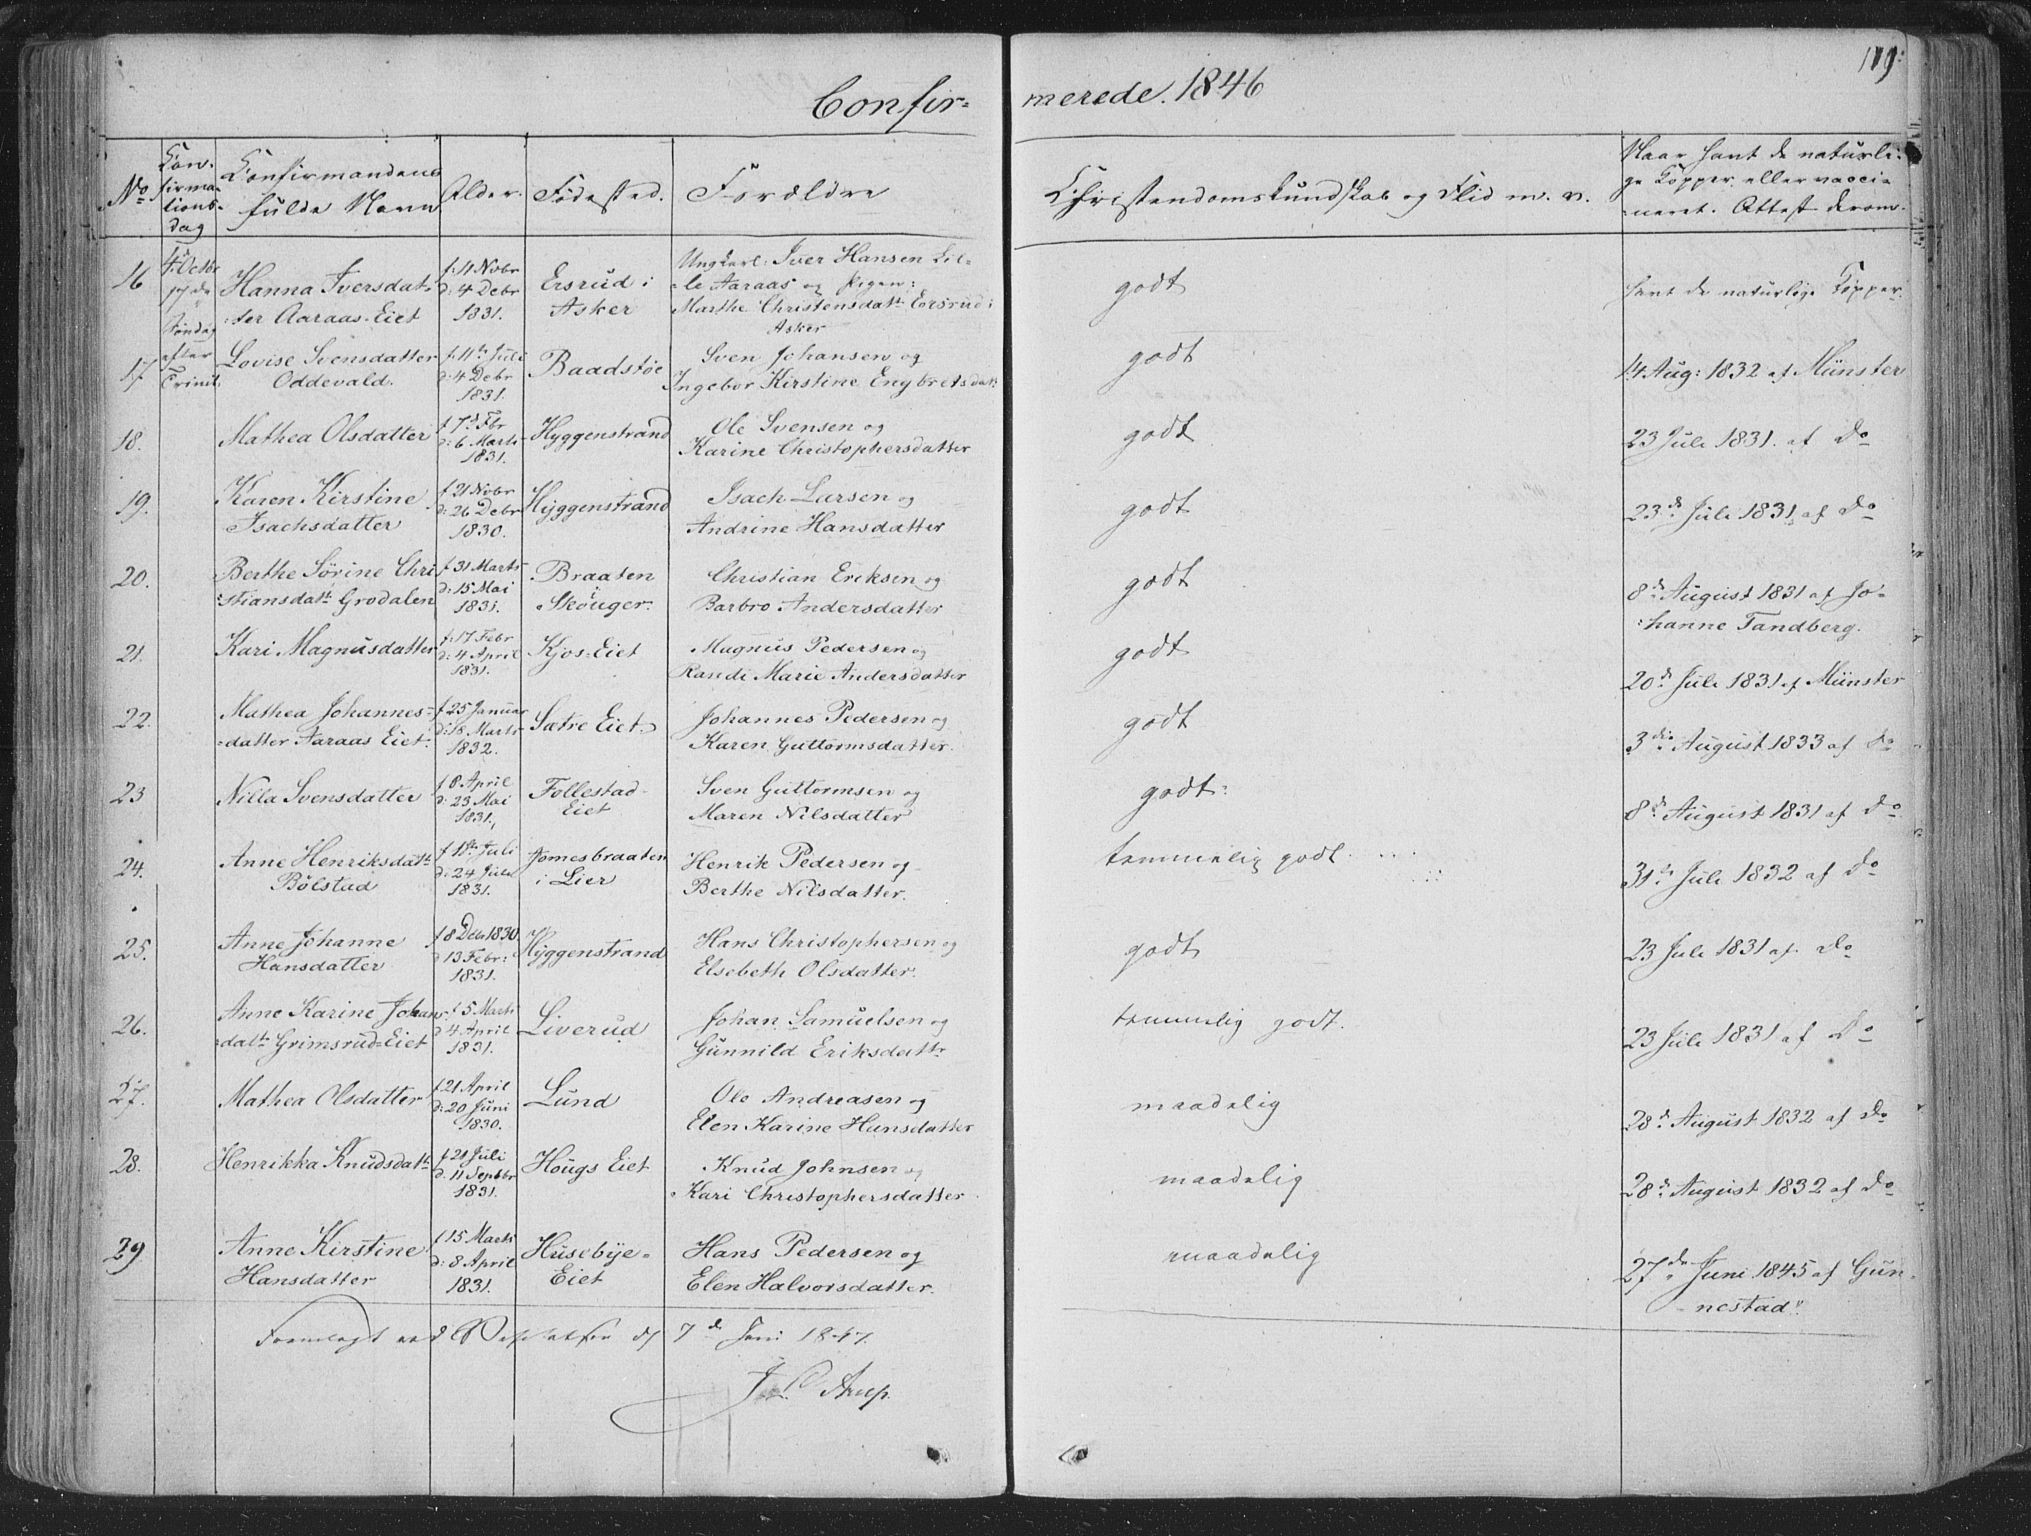 119.
Confir=
merede. 1846
No
Con-
firma-
tions-
dag
Confirmandens
fulde Navn
Alder.
Fødested.
Forældre
Christendomskundskab og Flid m. v.
Naar havt de naturli-
ge Kopper, eller vacci-
neret. Attest derom.
16
4. Octbr
17de
Søndag
efter
Trinit.
Hanna Iversdat-
ter Aaraas-Eiet
f: 11 Novbr
d: 4 Debr
1831.
Ersrud i
Asker
Ungkarl: Iver Hansen Lil-
le Aaraas og Pigen:
Marthe Christensdatt. Eorsrud i
Asker
godt
havt de naturlige Kopper.
17
Lovise Svensdatter
Oddevald.
f. 11te Juli
d: 4 Debr
1831.
Baadstøe
Sven Johansen og
Ingebor Kirstine Enybretsdatt
godt
14 Aug: 1832 af Münster
18.
Mathea Olsdatter
f 7d Fbr
d: 6 Marts
1831.
Hyggenstrand
Ole Svensen og
Karine Christophersdatter
godt
23 Juli 1831. af Do
19.
Karen Kirstine
Isachsdatter
f 21 Novbr
d: 26 Debr
1830.
Hyggenstrand
Isach Larsen og
Andrine Hansdatter
godt
23d Juli 1831 af Do
20.
Berthe Sørine Chri
stiansdatt. Grodalen
f 31 Marts
d: 15 Mai
1831.
Braaten
Skouger.
Christian Eriksen og
Barbro Andersdatter
godt
8d August 1831 af Jo-
hanne Tandberg.
21.
Kari Magnusdatter
f: 17 Febr
d: 4 April
1831.
Kjos=Eiet
Magnus Pedersen og
Randi Marie Andersdatter
godt
20d Juli 1831 af Münster
22.
Mathea Johannes-
datter Aaraas Eiet.
f 25 Januar
d: 18 Marts
1832.
Sætre Eiet.
Johannes Pedersen og
Karen Guttormsdatter.
godt
3die August 1833 af Do
23
Nilla Svensdatter
f 8 April
d: 23 Mai
1831.
Follestad-
Eiet
Sven Guttormsen og
Maren Nilsdatter
godt.
8d August 1831 af Do
24.
Anne Henriksdatt.
Bölstad
f 1ste Juli
d: 24 Juli
1831.
Tomesbraaten
i Lier
Henrik Pedersen og
Berthe Nilsdatter.
temmelig godt.
31te Juli 1832 af Do
25.
Anne Johanne
Hansdatter
f 8 Debr 1830
d 13 Febr:
1831.
Hyggenstrand
Hans Christophersen og
Elsebeth Olsdatter.
godt
23 Juli 1831 af. Do
26.
Anne Karine Johans-
datt. Grimsrud=Eiet
f 5 Marts
d 4 April
1831.
Liverud
Johan Samuelsen og
Gunnild Eriksdatt.
temmelig godt.
23 Juli 1831 af Do
27.
Mathea Olsdatter
f 21 April
d: 20 Juni
1830.
Lund
Ole Andreasen og
Elen Karine Hansdatter
maadelig
28d August 1832 af Do
28.
Henrikka Knudsdatt.
f 21 Juli
d. 11 Septbr
1831.
Hougs Eiet
Knud Johnsen og
Kari Christophersdatter
maadelig
28d August 1832 af Do
29.
Anne Kirstine
Hansdatter
f 15 Marts
d: 8 April
1831.
Husebye=
Eiet
Hans Pedersen og
Elen Halvorsdatter.
maadelig
27de Juni 1845 af Gun-
nestad.
Fremlagt ved Visitatsen d 7d Juni 1847.
J. L. Arup.